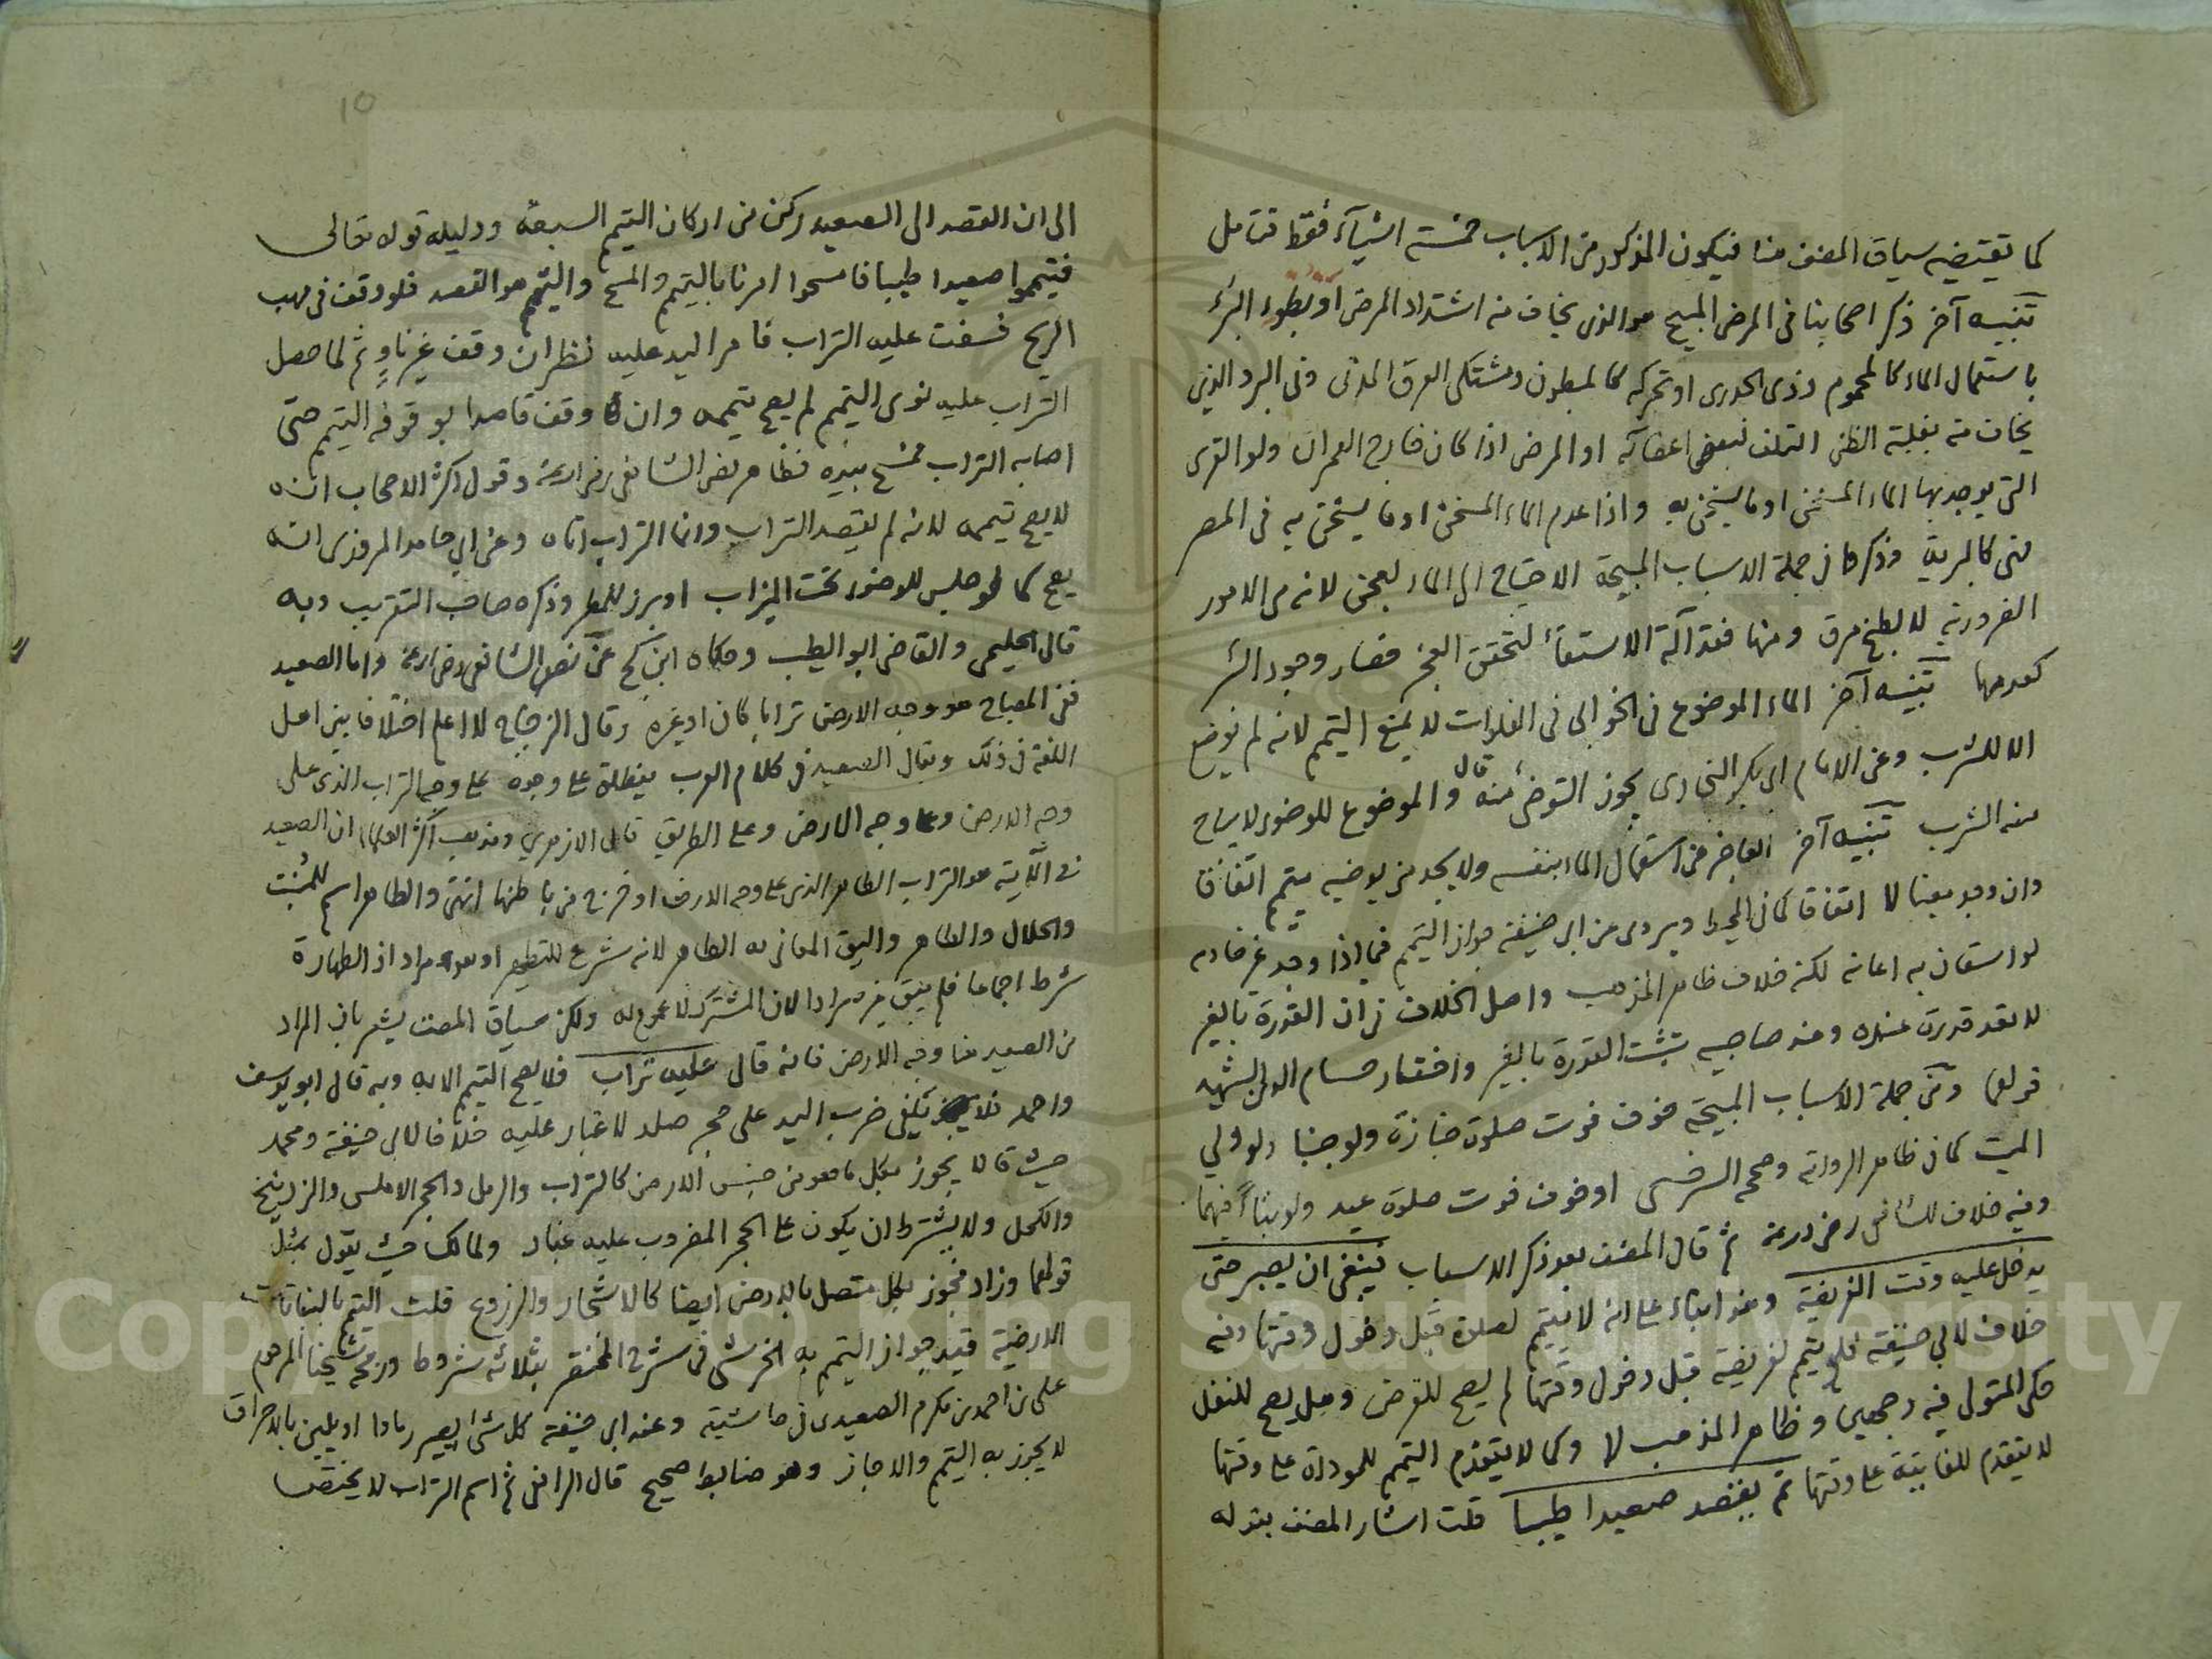 كما تقتضيه سياق المصنف هنا فيكون المذكور من الاسباب خمسة اشيآء فقط فتامل
تنبيه آخر ذكر اصحابنا في المرض المبيح هو الذي يخاف منه اشتداد المرض او بطوء البرء
باستعمال الماء كالمحموم وذي الجدري او تحركه كالمبطون ومشتكي العرق المدني وفي البرد الذي
يخاف منه بغلبة الظن التلف لبعض اعضآئه او المرض اذا كان خارج العمران ولو القرى
التي يوجد بها الماء المسخن او ما يسخن به واذا عدم الماء المسخن او ما يسخن به في المصر
فهي كالبرية وذكرها في جملة الاسباب المبيحة الاحتياج الى الماء لعجن لانه من الامور
الضرورية لا لطبخ مرق ومنها فقد آلة الاستقآء لتحقق العجز فصار وجود البئر
كعدمها تنبيه آخر الماء الموضوع في الخوابي في الفلوات لا يمنع التيمم لانه لم يوضع
الا للشرب وعن الامام ابي بكر البخاري يجوز التوضئ منه قال والموضوع للوضوء لا يباح
منه الشرب تنبيه آخر العاجز عن استعمال الماء بنفسه ولا يجد من يوضيه يتيمم اتفاقا
وان وجد معينا لا اتفاقا كما في المحيط ويروى عن ابي حنيفة جواز التيمم فيما اذا وجد غير خادمه
لو استعان به اعانه لكنه خلاف ظاهر المذهب واصل الخلاف في ان القدرة بالغير
لا تعد قدرة عنده وعند صاحبيه تثبت القدرة بالغير واختار حسام الدين الشهيد
قولهما ومن جملة الاسباب المبيحة خوف فوت صلوة جنازة ولو جنبا ولو ولي
الميت كما في ظاهر الرواية وصححه السرخسي او خوف فوت صلوة عيد ولو بناءً فيهما
وفيه خلاف للشافعي رضي الله عنه ثم قال المصنف بعد ذكر الاسباب ينبغي ان يصبر حتى
يدخل عليه وقت الفريضة وهو ابتناء على انه لا يتيمم لصلوة قبل دخول وقتها وفيه
خلاف لابي حنيفة فلو تيمم لفريضة قبل دخول وقتها لم يصح للفرض وهل يصح للنفل
حكى المتولي فيه وجهين وظاهر المذهب لا وكما لا يتقدم التيمم للموداة على وقتها
لا يتقدم للفايتة على وقتها ثم يقصد صعيدا طيبا قلت اشار المصنف بقوله
الى ان القصد الى الصعيد ركن من اركان التيمم السبعة ودليله قوله تعالى
فتيمموا صعيدا طيبا فامسحوا امرنا بالتيمم والمسح والتيمم هو القصد فلو وقف في مهب
الريح فسفت عليه التراب فامر اليد عليه نظر ان وقف غير ناوٍ ثم لما حصل
التراب عليه نوى التيمم لم يصح تيممه وان وقف قاصدا بوقوفه التيمم حتى
اصابه التراب فمسح بيده فظاهر نص الشافعي رضي الله عنه وقول اكثر الاصحاب انه
لا يصح تيممه لانه لم يقصد التراب وانما التراب اتاه وعن ابي حامد المروذي انه
يصح كما لو جلس للوضوء تحت الميزاب او برز للمطر وذكره صاحب التقريب وبه
قال الحليمي والقاضي ابو الطيب وحكاه ابن كج عن نص الشافعي رضي الله عنه واما الصعيد
ففي المصباح هو وجه الارض ترابا كان او غيره وقال الزجاج لا اعلم اختلافا بين اهل
اللغة في ذلك ويقال الصعيد في كلام العرب ينطلق على وجوه على وجه التراب الذي على
وجه الارض وعلى وجه الارض وعلى الطريق قال الازهري ومذهب اكثر العلماء ان الصعيد
في الآية هو التراب الطاهر الذي على وجه الارض او خرج من باطنها انتهى والطاهر اسم للمنبت
والحلال والطاهر واليق المعاني به الطاهر لانه شرع للتطهير او هو مراد اذ الطهارة
شرط اجماعا فلم يبق غيره مرادا لان المشترك لا عموم له ولكن سياق المصنف يشعر بان المراد
من الصعيد هنا وجه الارض فانه قال عليه تراب فلا يصح التيمم الا به وبه قال ابو يوسف
واحمد فلا يكفي ضرب اليد على حجر صلد لا غبار عليه خلافا لابي حنيفة ومحمد
حيث قالا يجوز بكل ما هو من جنس الارض كالتراب والرمل والحجر الاملس والزرنيخ
والكحل ولا يشترط ان يكون على الحجر المضروب عليه غبار ولمالك حيث يقول بمثل
قولهما وزاد فجوز بكل متصل بالارض ايضا كالاشجار والزروع قلت التيمم بالنباتات
الارضية قيد جواز التيمم به الخرشي في شرح المختصر بثلاثة شروط ورجحه شيخنا المرحوم
علي بن احمد بن مكرم الصعيدي في حاشيته وعند ابي حنيفة كل شئ يصير رمادا او يلين بالاحراق
لا يجوز به التيمم والا جاز وهو ضابط صحيح قال الرافعي ثم اسم التراب لا يختص